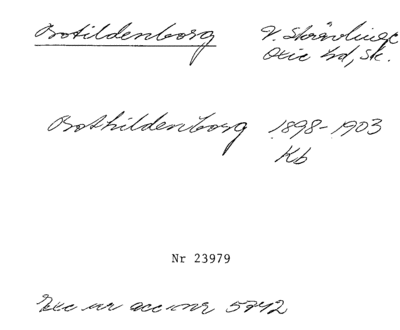 Botildenborg V. Skrävlinge
Oxie hd, Sk.
Bothildenborg 1898-1903
Kb
Nr 23979
Exc ur acc nr 5742